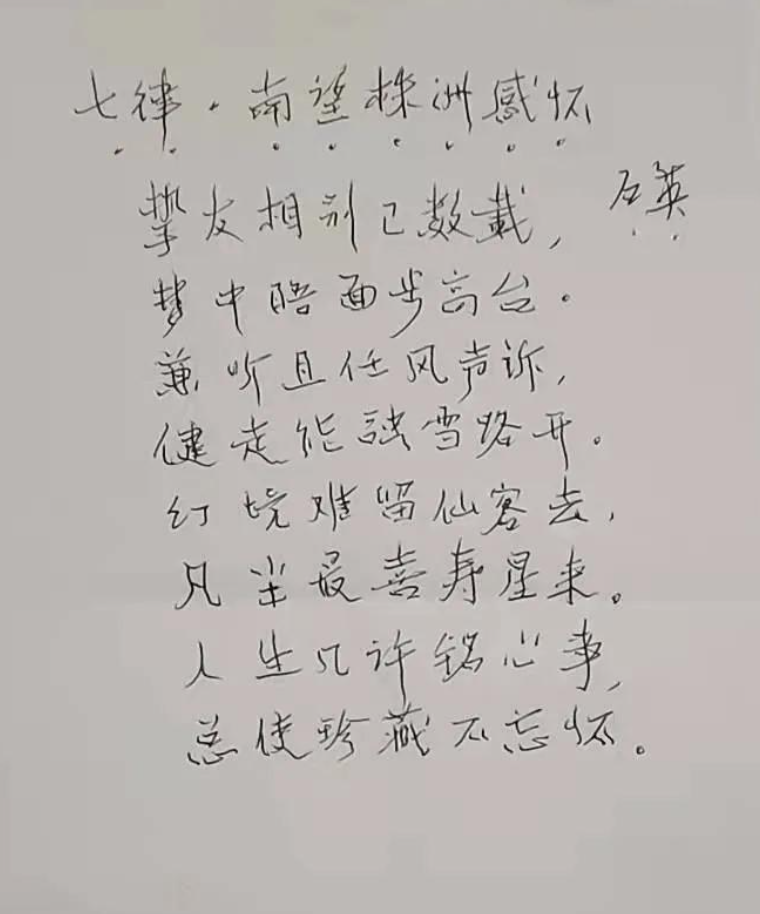 七律·南望株洲感怀
石英
挚友相别已数载，
梦中晤面步高台。
兼听且任风声诉，
健走能融雪路开。
幻境难留仙客去，
凡尘最喜寿星来。
人生几许铭心事，
总使珍藏不忘怀。